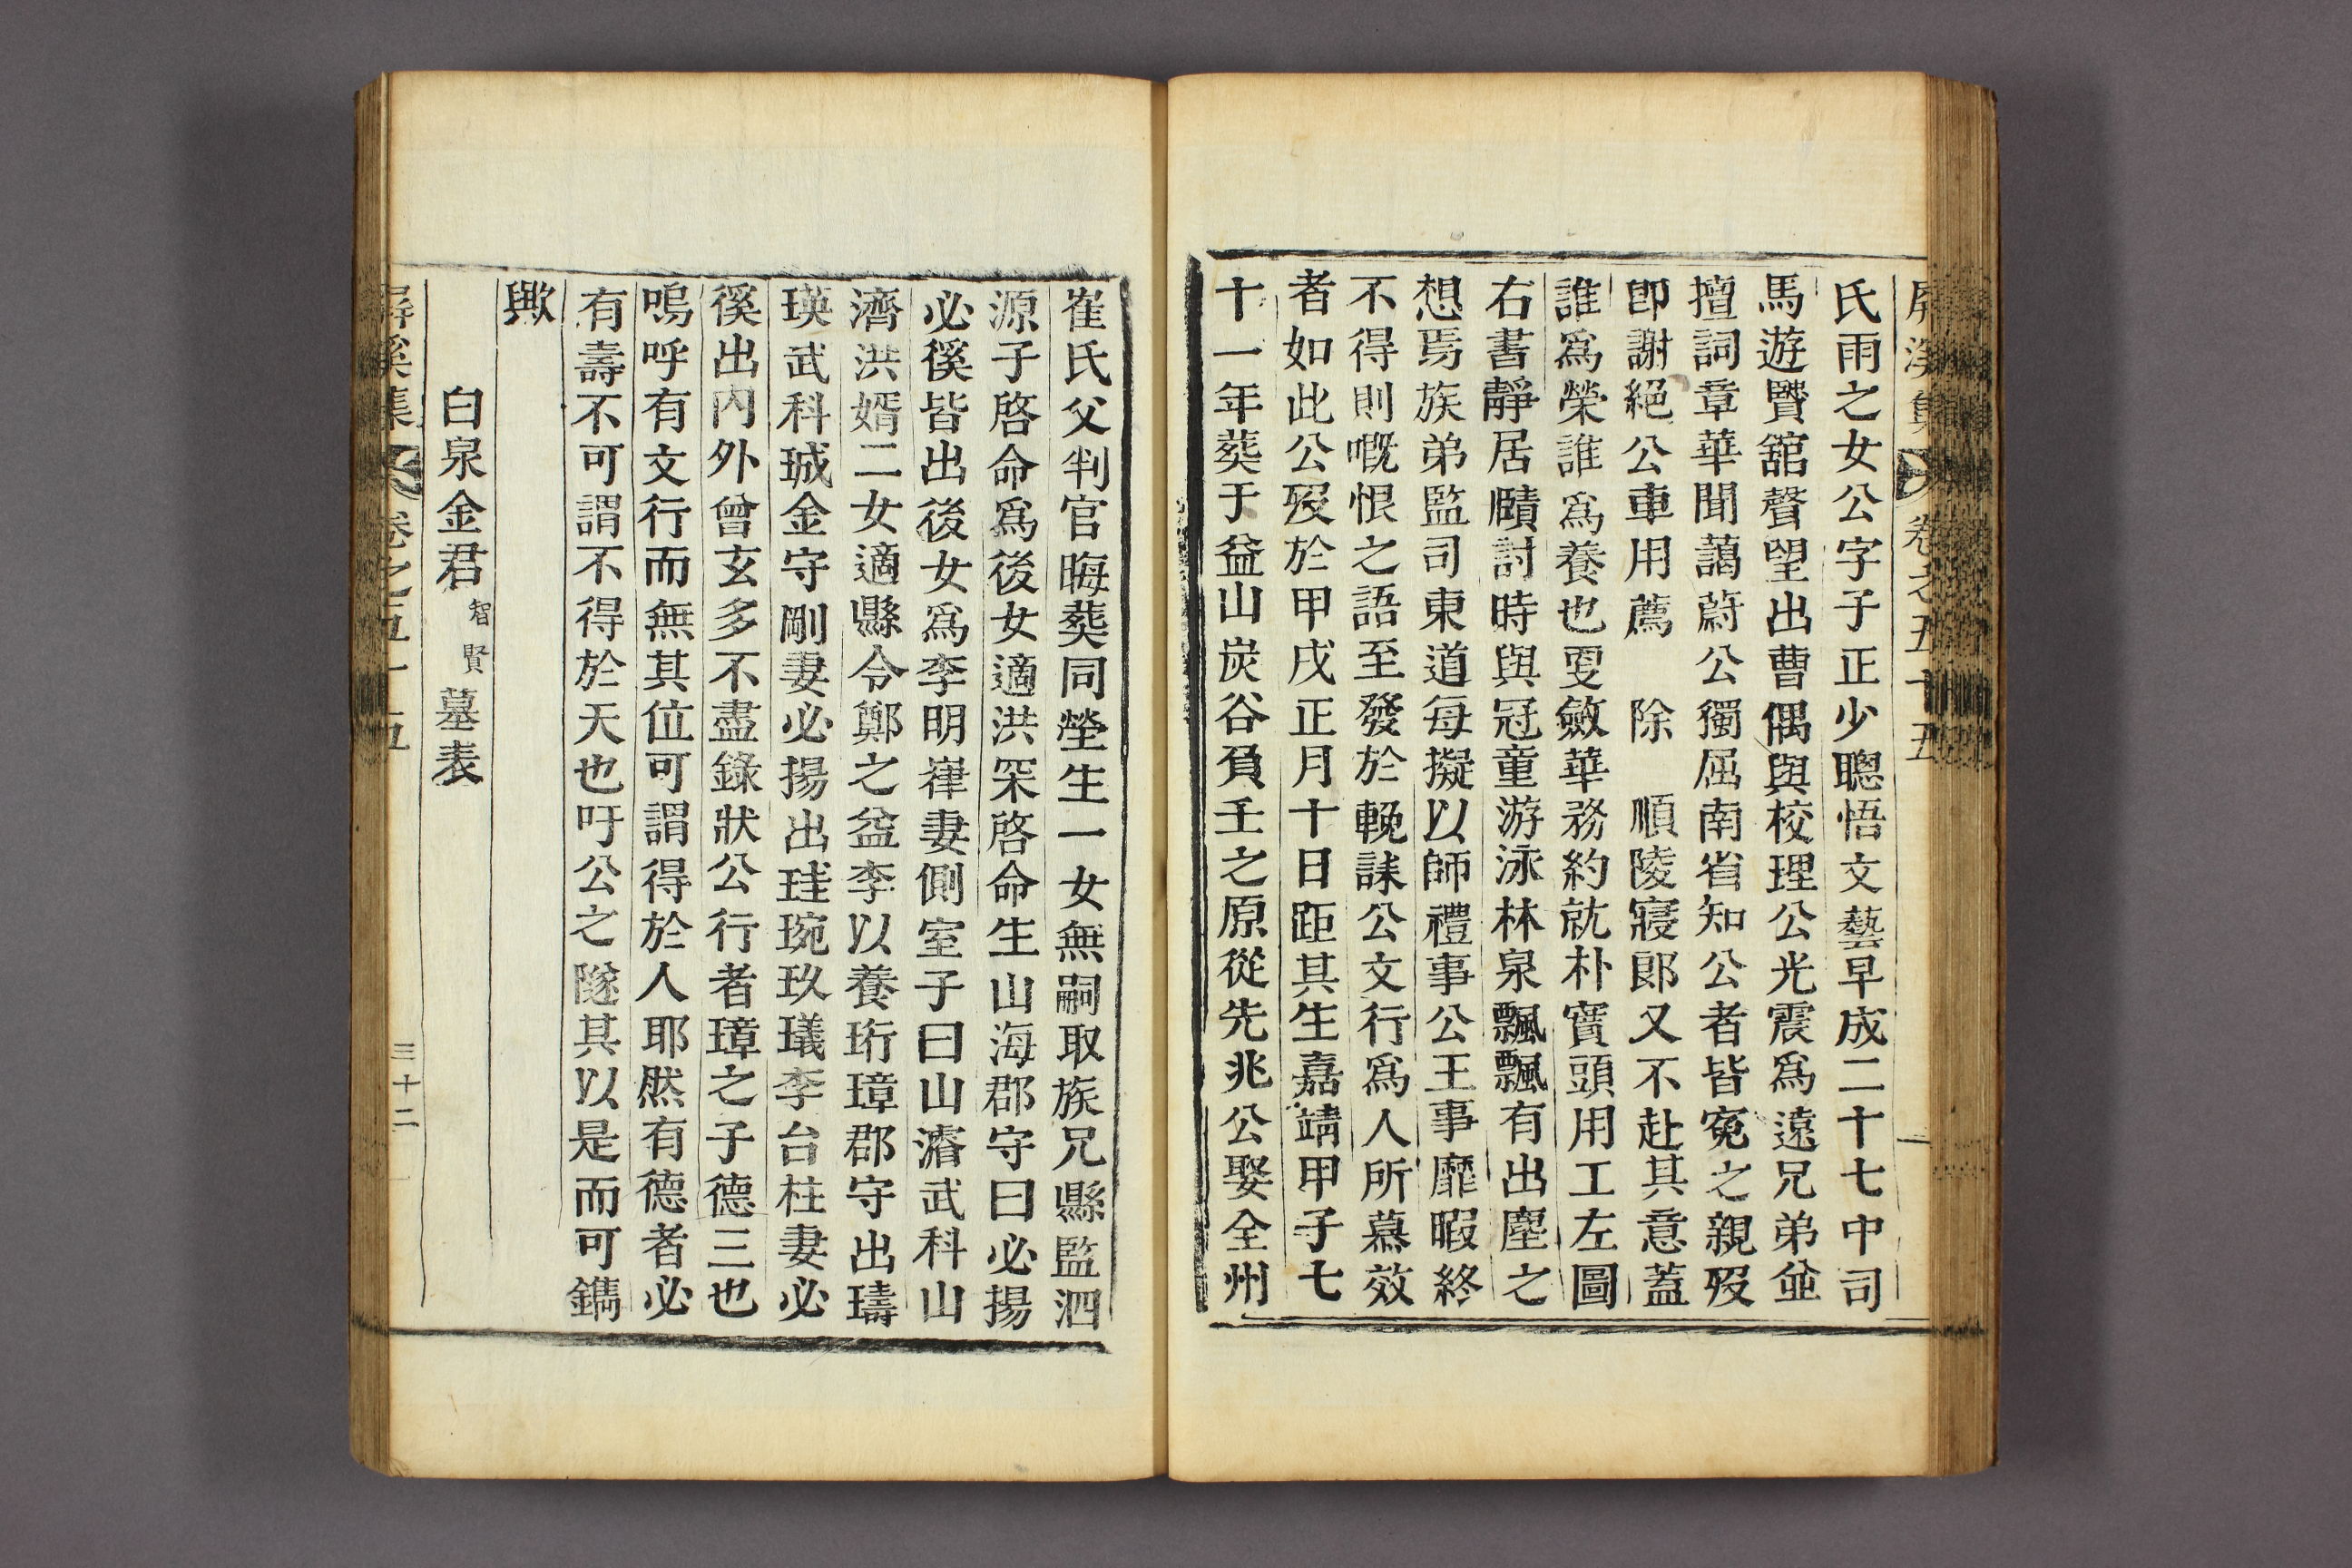 屛溪集 卷之五十五
氏雨之女公字子正少聰悟文藝早成二十七中司
馬遊贒舘聲望出曹偶與校理公光震爲遠兄弟並
擅詞章華聞藹蔚公獨屈南省知公者皆寃之親歿
卽謝絕公車用薦 除 順陵寢郎又不赴其意蓋
誰爲榮誰爲養也更斂華務約就朴實頭用工左圖
右書靜居賾討時與冠童游泳林泉飄飄有出塵之
想焉族弟監司東道每擬以師禮事公王事靡暇終
不得則嘅恨之語至發於輓誄公文行爲人所慕效
者如此公歿於甲戌正月十日距其生嘉靖甲子七
十一年葬于益山炭谷負壬之原從先兆公娶全州
崔氏父判官晦葬同塋生一女無嗣取族兄縣監泗
源子啓命爲後女適洪罙啓命生山海郡守曰必揚
必徯皆出後女爲李明嵂妻側室子曰山濬武科山
濟洪婿二女適縣令鄭之益李以養珩璋郡守出璹
瑛武科珹金守剛妻必揚出珪琬玖璡李台柱妻必
徯出內外曾玄多不盡錄狀公行者璋之子德三也
嗚呼有文行而無其位可謂得於人耶然有德者必
有壽不可謂不得於天也吁公之隧其以是而可鐫
歟
白泉金君智賢墓表
屛溪集 卷之五十五 三十二